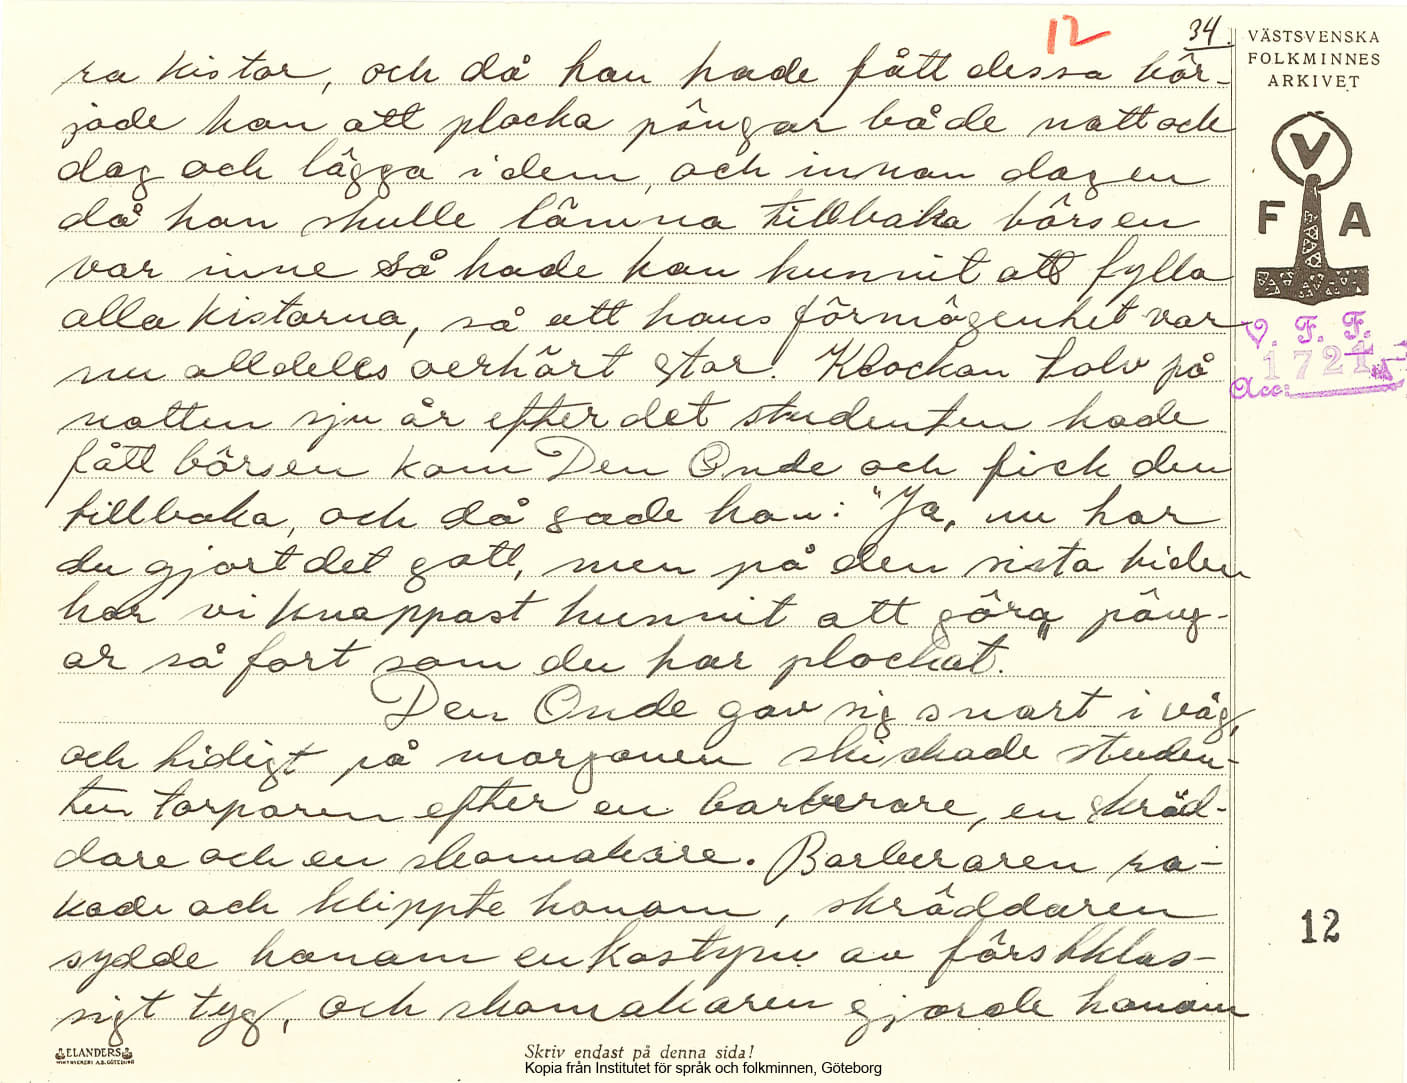 12
34.
VÄSTSVENSKA
FOLKMINNES
ARKIVET
V
F A
V. F. F.
1721
Acc:
ra kistor, och då han hade fått dessa bör-
jade han att plocka pängar både natt och
dag och lägga i dem, och innan dagen
då han skulle lämna tillbaka börsen
var inne så hade han hunnit att fylla
alla kistorna, så att hans förmögenhet var
nu alldeles oerhört stor. Klockan tolv på
natten sju år efter det studenten hade
fått börsen kom Den Onde och fick den
tillbaka, och då sade han: "Ja, nu har
du gjort det gott, men på den sista tiden
har vi knappast hunnit att göra päng-
ar så fort som du har plockat."
Den Onde gav sig snart i väg,
och tidigt på morgonen skickade studen-
ten torparen efter en barberare, en skräd-
dare och en skomakare. Barberaren ra-
kade och klippte honom, skräddaren
sydde honom en kostym av förstklas-
sigt tyg, och skomakaren gjorde honom
12
ELANDERS
Skriv endast på denna sida!
Kopia från Institutet för språk och folkminnen, Göteborg